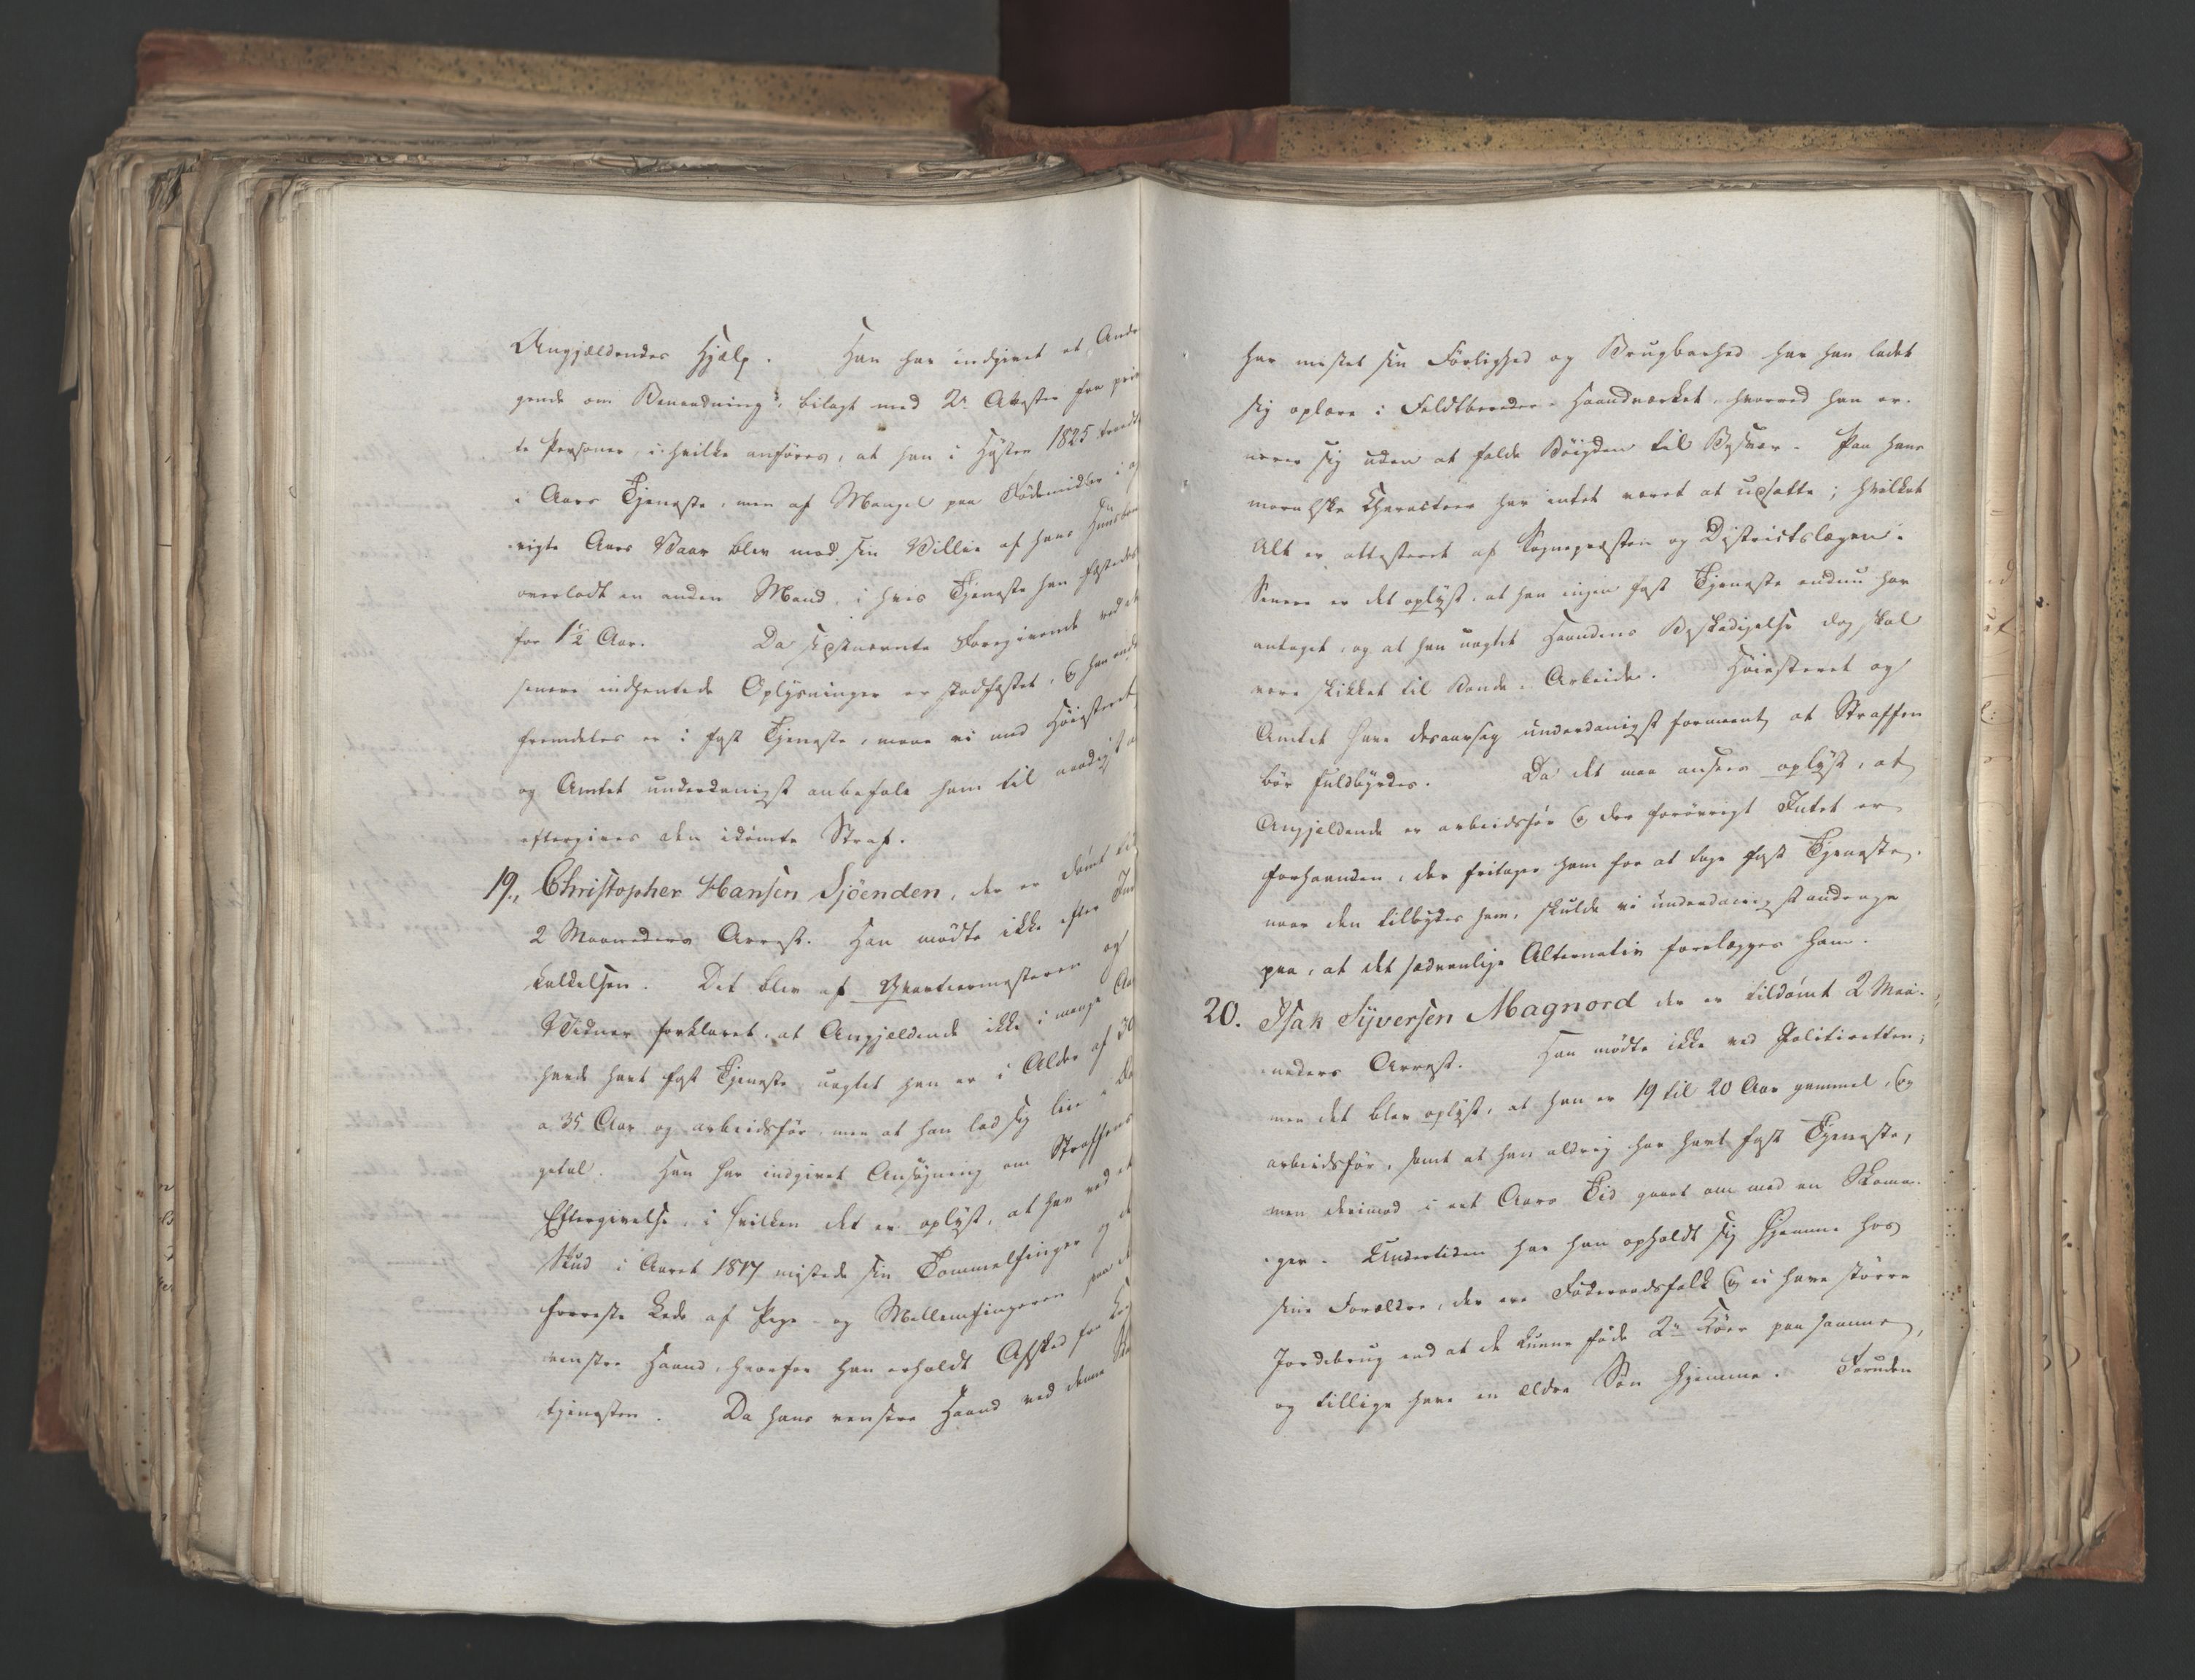 Angjældendes Hjælp. Han har indgivet et Andra
gende om Benaadning, bilagt med 2de Attester fra priva
te Personer, i hvilke anføres, at han i Høsten 1825 traadte
i Aars Tjeneste, men af Mangel paa Födemidler i 
rigte Aars Vaar blev mod sin Villie af hans Huusbon
overladt en anden Mand, i hvis Tjeneste han fæstedes
for 1½ Aar. Da sidstnævnte Foregivende ved de
senere indhentede Oplysninger er stadfæstet, og han end
fremdeles er i fast Tjeneste, maae vi med Höiesteret
og Amtet underdanigst anbefale ham til naadigst at
eftergives den idømte Straf.
19., Christopher Hansen Sjöenden, der er dömt til
2 Maaneders Arrest. Han mödte ikke efter Ind
kaldelsen. Det blev af Qvarteermesteren og
Vidner forklaret, at Angjældende ikke i mange Aar
havde havt fast Tjeneste, uagtet han er i Alder af 30
a 35 Aar og arbeidsfør, men at han lod sig leie i Da
getal. Han har indgivet Ansögning om Straffens
Eftergivelse, i hvilken det er oplyst, at han ved et
Skud i Aaret 1817 mistede sin Tommelfinger og de
forreste Lede af Pege- og Mellemfingeren paa den
venstre Haand, hvorfor han erholdt Afsked fra Krigs
tjenesten. Da hans venstre Haand ved denne Ska
har mistet sin Förlighed og Brugbarhed har han ladet
sig oplære i Feldtbereder-Haandværket, hvorved han er-
nærer sig uden at falde Böigden til Besvær. Paa hans
moralske Charakteer har intet været at udsætte; hvilket
Alt er attesteret af Sognepræsten og Districtslægen.
Senere er det oplyst, at han ingen fast Tjeneste endnu har
antaget, og at han uagtet Haandens Beskadigelse dog skal
være skikket til Bonde-Arbeide. Höiesteret og
Amtet have desaarsag underdanigst formeent, at Straffen
bör fuldbyrdes. Da det maa ansees oplyst, at
Angjeldende er arbeidsför og der forövrigt Intet er
forhaanden, der fritager ham for at tage fast Tjeneste,
naar den tilbydes ham, skulde vi underdanigst andrage
paa, at det sædvanlige Alternativ forelægges ham.
20. Isak Syversen Magnord der er tildömt 2 Maa-
neders Arrest. Han mödte ikke ved Politieretten;
men det blev oplyst, at han er 19 til 20 Aar gammel, og
arbeidsför, samt at han aldrig har havt fast Tjeneste,
men derimod i eet Aars Tid gaaet om med en Skoma-
ger. Undertiden har han opholdt sig hjemme hos
sine Forældre, der ere Föderaadsfolk og ei have större
Jordebrug end at de kunne föde 2de Köer paa samme,
og tillige have en ældre Sön hjemme. Foruden